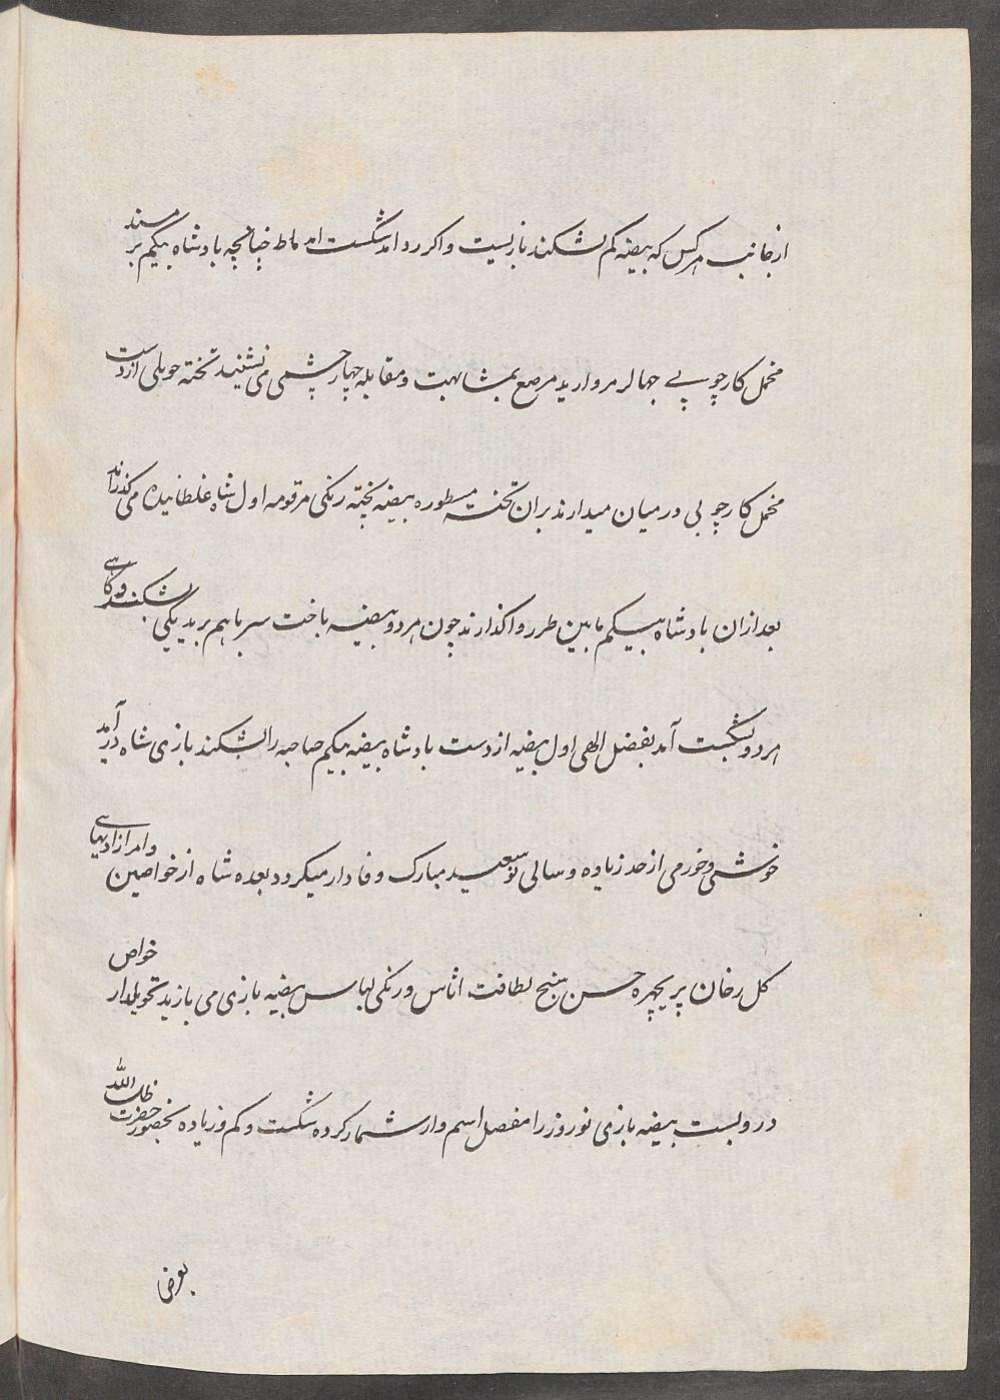 از جانب هرکس که بیضه کم بشکند بازیست و اکر رد امد شکست امد ماط چنانچه بادشاه بیکم بر مسند
مخمل کارچوبے جهالر مروارید مرصع بمشابهت و مقابله چهار چشمی می نشینند تخته حویلی از دست
مخمل کارچوبی درمیان میدارند بران تخته مسطوره بیضه پخته رنکی مرقومه اول شاه غلطانیده می کذرانند
بعد ازان بادشاه بیکم مابین طرر واکذارند چون هر دو بیضه باخت سر باهم برید یکی بشکند و کاهے
هر دو بشکست آمد بفضل الهی اول بیضه از دست بادشاه بیضه بیکم صاحبه را بشکند بازی شاه در آمد
خوشی و خورمی از حد زیاده و سالی نو سعید مبارک و فادار میکردد بعده شاه از خواصین و امرازادیهاے
کل رخان پریچهره حسن بنج لطافت اثاس و رنکی لباس بیضه بازی می بازید تحویلدار خواص
در وبست بیضه بازی نوروز را مفصل اسم وار شمار کرده شکست و کم و زیاده بحضور حضرت ظل الله
بعرض